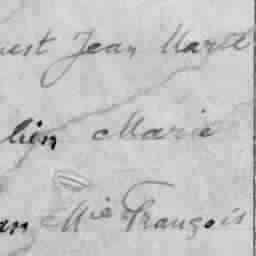 uest Jean Marie
lien Marie
an Mie François